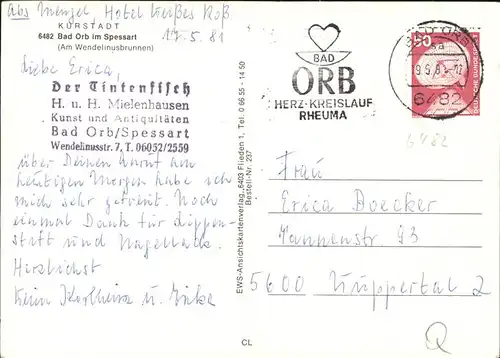 Abs Menzel Hotel Weißes Roß
KURSTADT
17.5.81
6482 Bad Orb im Spessart
(Am Wendelinusbrunnen)
Liebe Erica,
Der Tintenfisch
H. u. H. Mielenhausen
Kunst und Antiquitäten
Bad Orb/Spessart
Wendelinusstr. 7, T. 06052/2559
über Deinen Anruf am
heutigen Morgen habe ich
mich sehr gefreut. Noch
einmal Dank für Lippen-
stift und Nagellack.
Herzlichst
Karlheinz u.
EWS-Ansichtskartenverlag, 6403 Flieden 1, Tel. 0 66 55 - 14 50
Bestell-Nr. 237
CL
BAD
ORB
HERZ-KREISLAUF
RHEUMA
BAD ORB
6482
50
DEUTSCHE BUNDESPOST
6482
Frau
Erica Boecker
Tannenstr. 93
5600 Wuppertal 2
Q